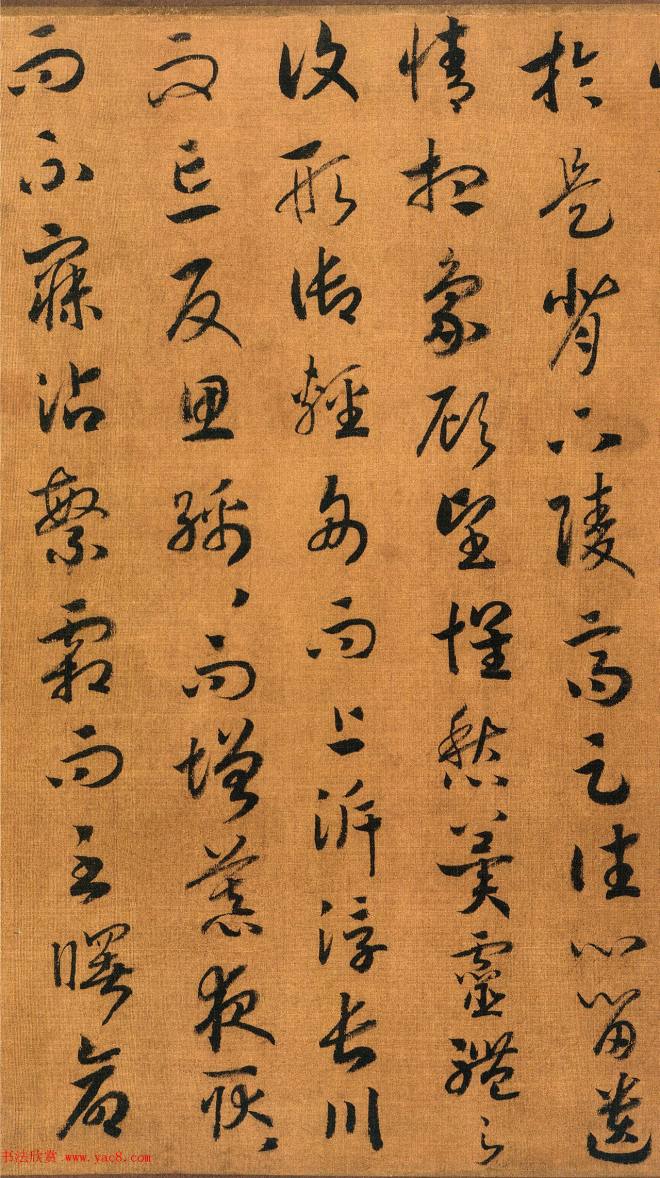 於是背下陵高足往心留遺
情想象顧望懷愁冀靈體之
復形御輕舟而上泝浮長川
而忘反思綿、而增慕夜耿、
而不寐沾繁霜而至曙命
书法欣赏 www.yac8.com